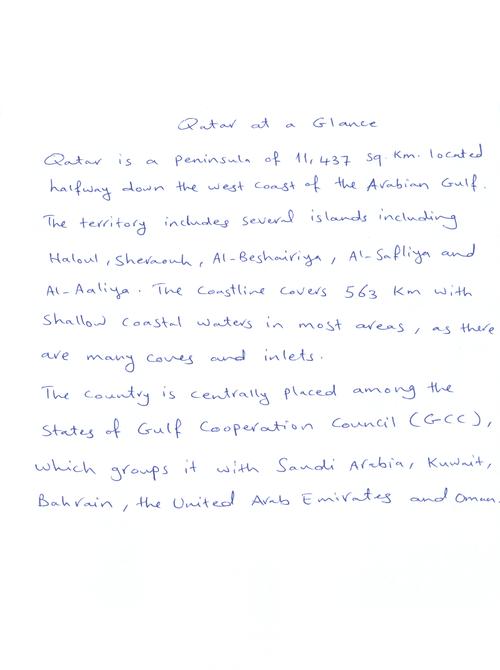 Qatar at a Glance
Qatar is a peninsula of 11,437 sq. Km. located
halfway down the west coast of the Arabian Gulf.
The territory includes several islands including
Haloul, Sheraouh, Al-Beshairiya, Al-Safliya and
Al-Aaliya. The coastline covers 563 Km with
shallow coastal waters in most areas, as there
are many coves and inlets.
The country is centrally placed among the
States of Gulf Cooperation Council (GCC),
which groups it with Saudi Arabia, Kuwait,
Bahrain, the United Arab Emirates and Oman.